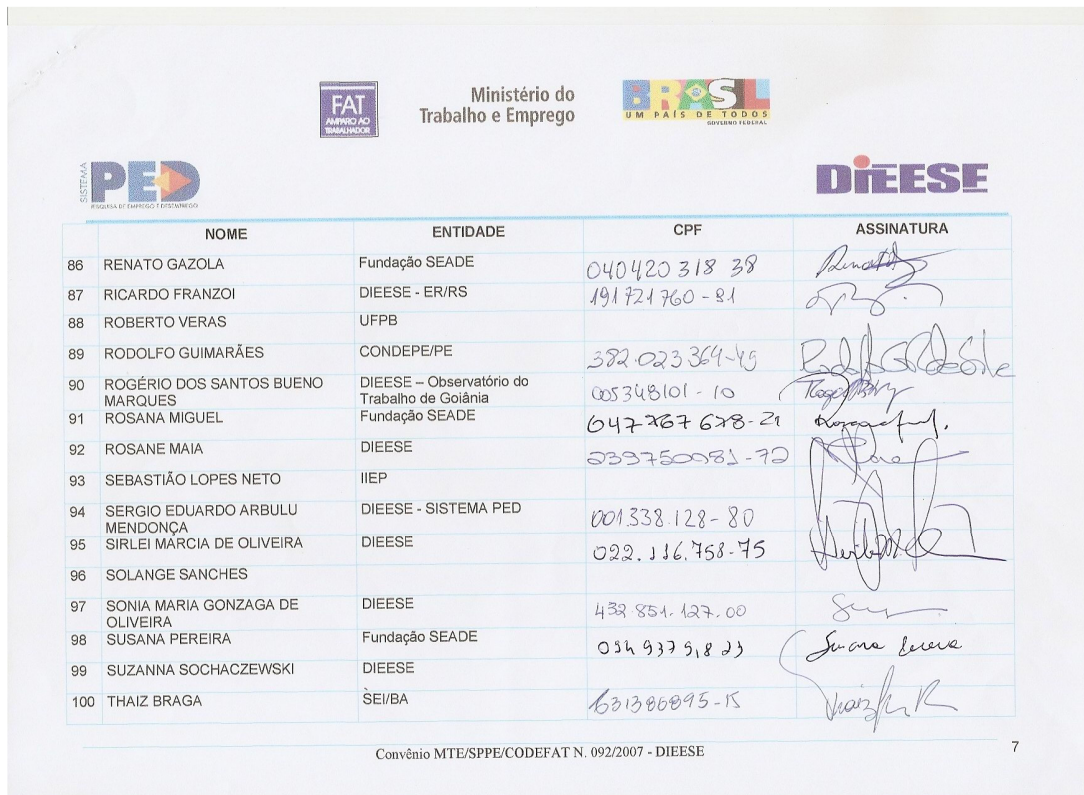 FAT
AMPARO AO
TRABALHADOR
Ministério do
Trabalho e Emprego
BRASIL
UM PAÍS DE TODOS
GOVERNO FEDERAL
SISTEMA
PED
PESQUISA DE EMPREGO E DESEMPREGO
DIEESE
NOME ENTIDADE CPF ASSINATURA
86 RENATO GAZOLA Fundação SEADE 040420 318 38
87 RICARDO FRANZOI DIEESE - ER/RS 191721760-91
88 ROBERTO VERAS UFPB
89 RODOLFO GUIMARÃES CONDEPE/PE 382.023.364-49
90 ROGÉRIO DOS SANTOS BUENO DIEESE – Observatório do 005348101-10
MARQUES Trabalho de Goiânia
91 ROSANA MIGUEL Fundação SEADE 047767678-21
92 ROSANE MAIA DIEESE 239750081-72
93 SEBASTIÃO LOPES NETO IIEP
94 SERGIO EDUARDO ARBULU DIEESE - SISTEMA PED 001.338.128-80
MENDONÇA
95 SIRLEI MARCIA DE OLIVEIRA DIEESE 022.116.758-75
96 SOLANGE SANCHES
97 SONIA MARIA GONZAGA DE DIEESE 432.851.127.00
OLIVEIRA
98 SUSANA PEREIRA Fundação SEADE Susana Pereira
99 SUZANNA SOCHACZEWSKI DIEESE
100 THAIZ BRAGA SEI/BA 631386895-15
Convênio MTE/SPPE/CODEFAT N. 092/2007 - DIEESE
7